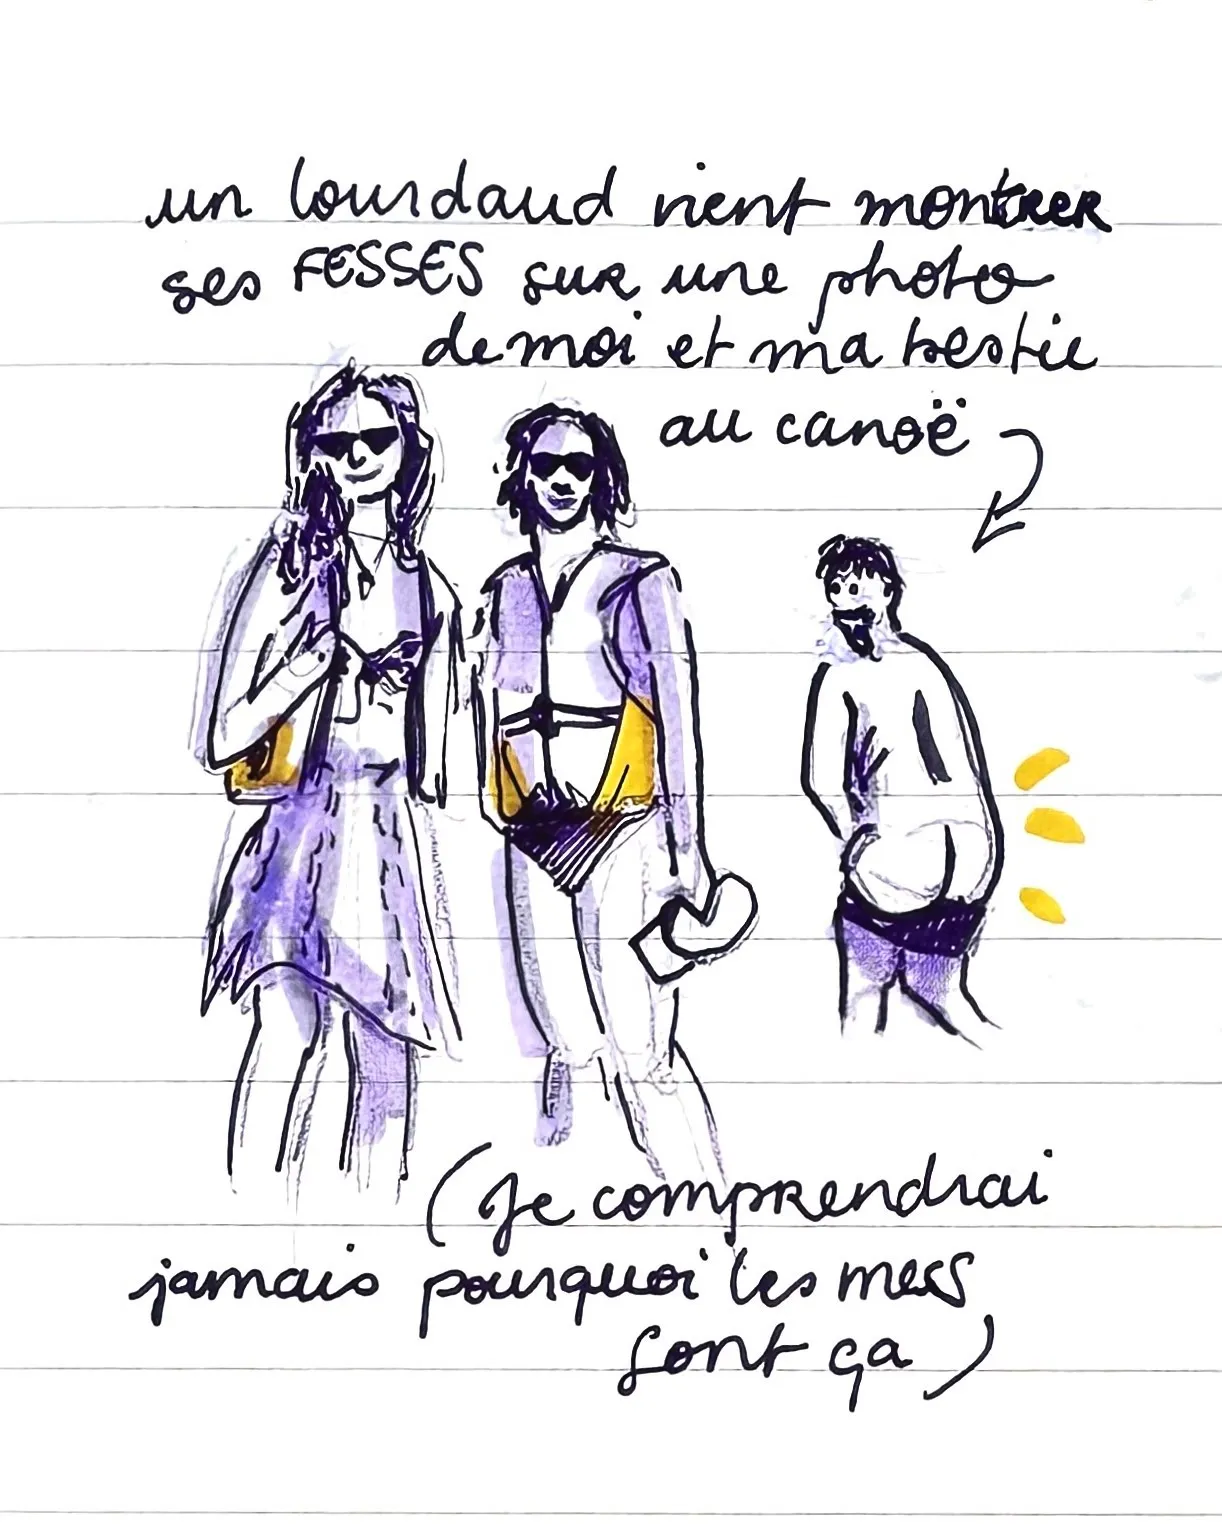 un lourdaud vient montrer
ses FESSES sur une photo
de moi et ma bestie
au canoë
(Je comprendrai
jamais pourquoi les mecs
font ça)